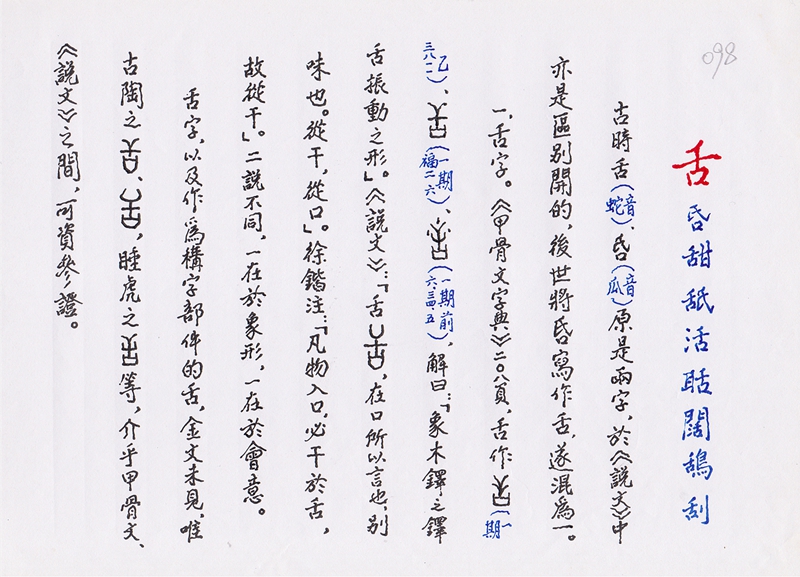 098
舌 昏 甜 舐 活 聒 闊 鴰 刮
古時舌(音蛇)、昏(音瓜)原是兩字,於《說文》中
亦是區別開的,後世將昏寫作舌,遂混為一。
一、舌字。《甲骨文字典》二〇八頁,舌作(一期
乙三八一一)、(一期福二六)、(一期前六·三四·五),解曰:「象木鐸之鐸
舌振動之形」。《說文》:「舌,在口所以言也、別
味也。從干,從口」。徐鍇注:「凡物入口,必干於舌,
故從干」。二說不同,一在於象形,一在於會意。
舌字,以及作為構字部件的舌,金文未見,唯
古陶之、,睡虎之等,介乎甲骨文、
《說文》之間,可資參證。